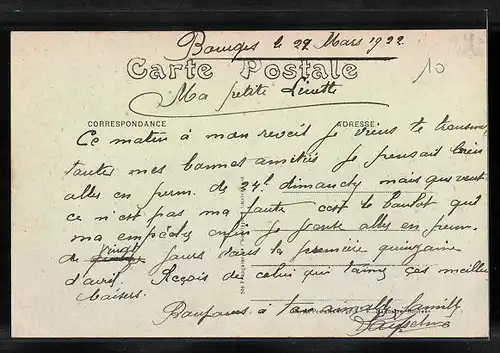 Bourges le 29 Mars 1922
10
Carte Postale
Ma petite Linette
CORRESPONDANCE
ADRESSE
Ce matin à mon reveil je viens te transm
toutes mes bonnes amitiés je pensait bien
alles en perm. de 24h dimanche mais que veut
ce n'est pas ma faute c'est le boulot qui
ma empéché enfin je pense alles en perm.
de vingt jours dans la première quinzaine
d'avril. Reçois de celui qui t'aime ces meilleu
baisers.
Bonjours à ton aimable famille